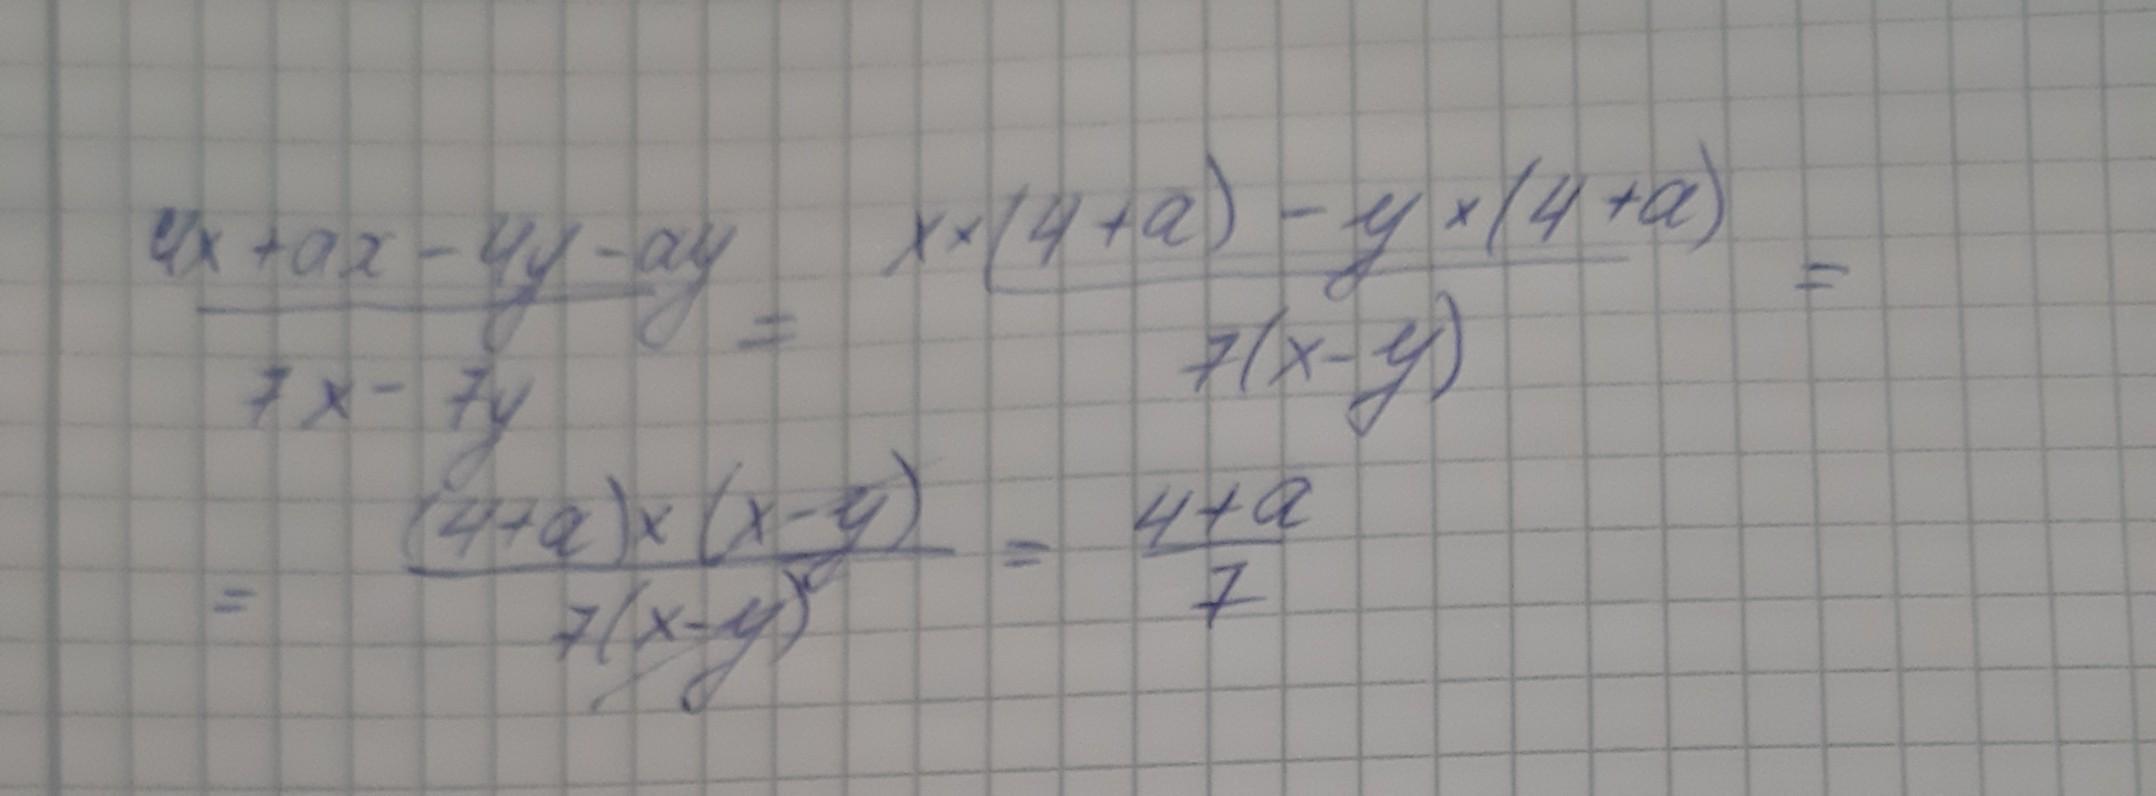 4x + ax - 4y - ay / 7x - 7y = x × (4 + a) - y × (4 + a) / 7(x - y) =
= (4 + a) × (x - y) / 7(x - y) = 4 + a / 7